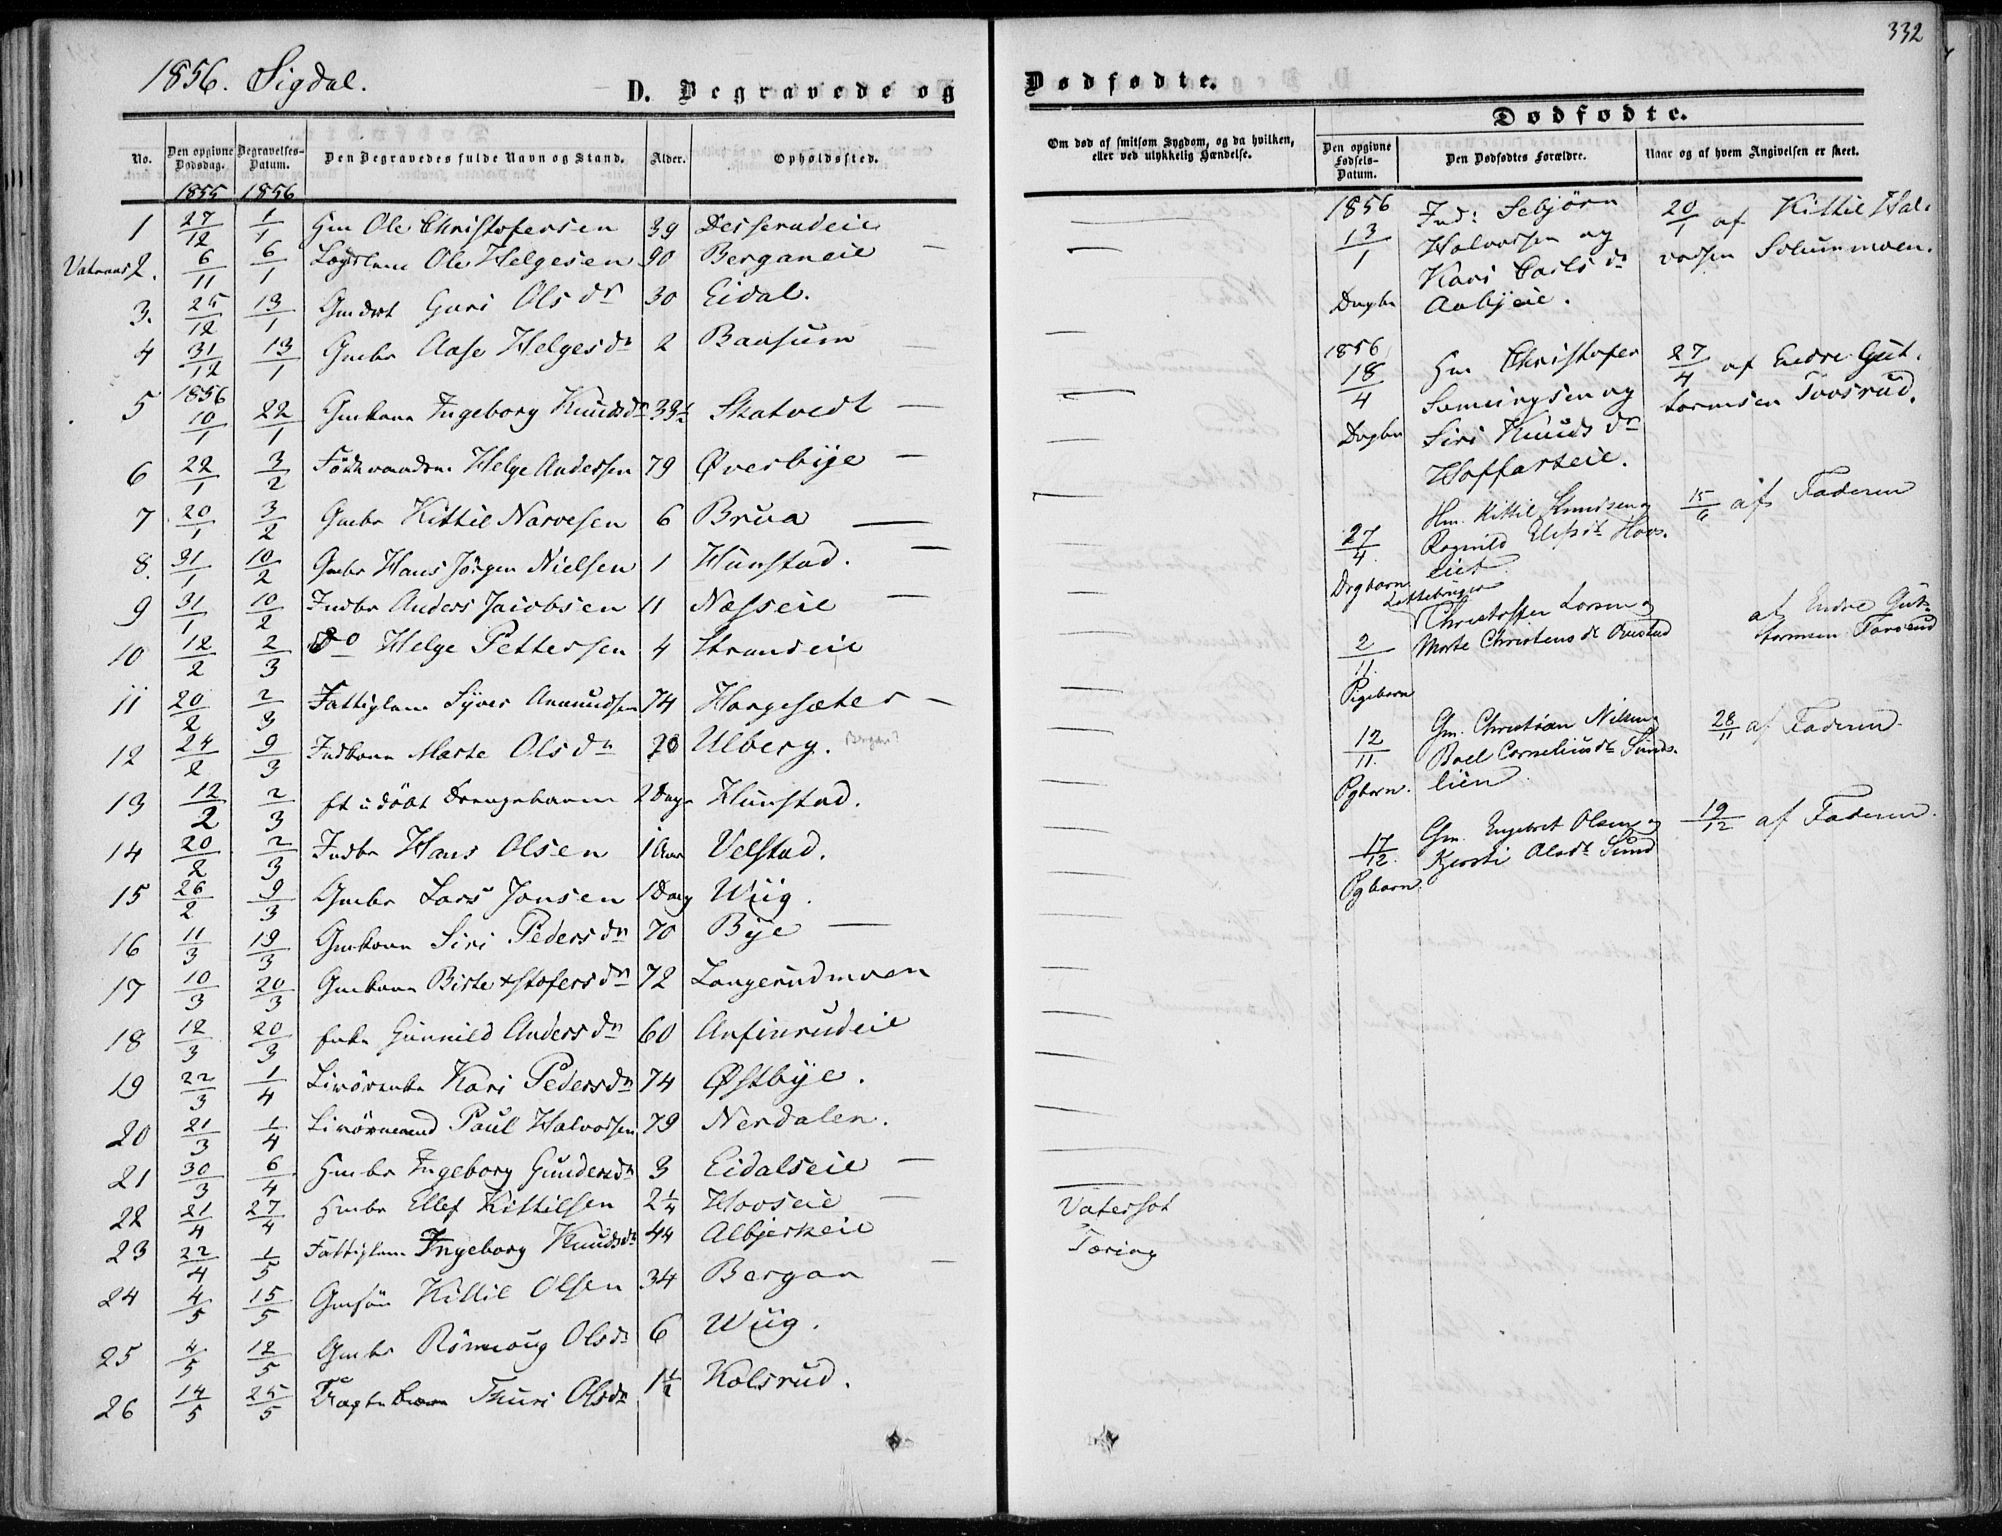 332
1856. Sigdal.
D. Begravede og
Dødfødte.
Dødfødte.
No. Den opgivne Dødsdag. Begravelses-Datum. Den Begravedes fulde Navn og Stand. Alder. Opholdssted.
1855 1856
1 27/12 1/1 Hm Ole Christofersen 39 Desserudeie
2. 6/11 6/1 Ole Helgesen 90 Berganeie
3. 25/12 13/1 Guri Olsdr 30 Eidal.
4 31/12 13/1 Gmbr Aase Helgesdr 2 Baasum
1856
5 10/1 22/1 Gmkone Ingeborg Knudsdr 33½ Skatvedt
6 22/1 3/2 Helge Andersen 79 Øverbÿe
7 20/1 3/2 Gmbr Kittil Narvesen 6 Brua
8. 31/1 10/2 Gmbr Hans Jörgen Nielsen 1 Hunstad.
9 31/1 10/2 Indbr Anders Jacobsen 11 Næsseie
10 12/2 2/3 Do Helge Pettersen 4 Strandeie
11 20/2 2/3 Fattiglem Syver Amundsen 74 Horgesæter
12 24/2 9/3 Indkone Marte Olsdr 70 Ulberg. Bergan?
13 12/2 2/3 et udöbt Drengebarn 2 Dage Hunstad.
14 20/2 2/3 Indbr Hans Olsen 1 Aar Velstad.
15 26/2 9/3 Gmbr Lars Jonsen 1 Dag Wiig.
16 11/3 19/3 Gmkone Siri Pedersdr 70 Bÿe
17 10/3 20/3 Gmkone Birte Xstofersdr 72 Langerudmoen
18 12/3 20/3 Enke Gunnild Andersdr 60 Anfinrudeie
19 22/3 1/4 Kari Pedersdr 74 Østbÿe.
20 21/3 1/4 Paul Halvorsen 79 Nerdalen.
21 30/3 6/4 Hmbr Ingeborg Gundersdr 3 Eidalseie
22 21/4 27/4 Hmbr Ellef Kittilsen 2¼ Hovseie
23 22/4 1/5 Fattiglem Ingeborg Knudsdr 44 Albjerkeie
24 4/5 15/5 Gmsön Kittil Olsen 34 Bergan
25 4/5 12/5 Gmbr Rönnoug Olsdr 6 Wiig.
26 14/5 25/5 Thuri Olsdr 1½ Kolsrud.
Om død af smitsom Sygdom, og da hvilken,
eller ved ulykkelig Hændelse.
Vatersot
Tæring
Den opgivne Fødsels-Datum. Den Dødfødtes Forældre. Naar og af hvem Angivelsen er skeet.
1856 Ind: Sebjörn 20/1 af Kittil Hal-
13/1 Halvorsen og vorsen Solummoen.
Kari Carlsdr
Dngbn Aabÿeie.
1856
18/4 Hm Christofer 27/4 af Endre Gut-
Svenungsen og tormsen Toosrud.
Dngbn Siri Knudsdr
Hoffarteie.
27/4 Hm. Kittil Knudsen og 15/6 af Faderen
Ragnild Elefsdr Hovs-
Drgbarn eiet
Christoffer Larsen og af Endre Gut-
2/11. Marte Christensdr tormsen Toosrud
Pigebarn
12/11. Gm. Christian Nilsen og 28/11 af Faderen
Boel Corneliusdr Sunds-
Pgbarn. lien
17/12. Gm. Engebret Olsen og 19/12 af Faderen.
Kjersti Olsdr Sund
Pgbarn